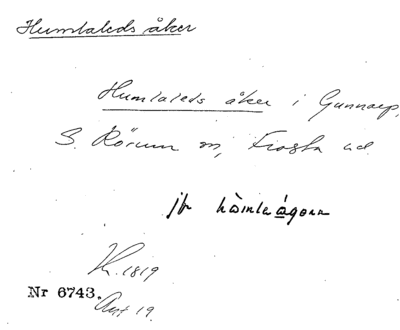 Humlaleds åker
Humlaleds åker i Gunnarp,
S. Rörum sn, Frosta hd
jfr
Nr 6743.
Avs 19